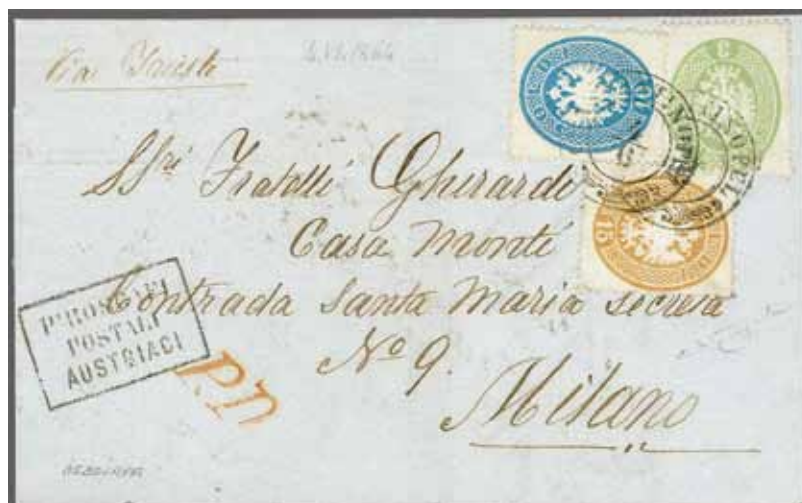 Via Trieste
2.VI.1864
10
3
SSri Fratelli Ghirardi
Casa Monti
15
Contrada Santa Maria secreta
No 9.
Milano
PIROSCAFI
POSTALI
AUSTRIACI
P.D